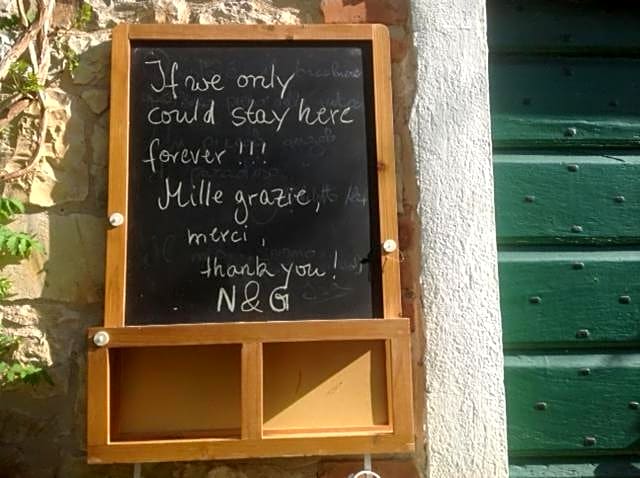 If we only
could stay here
forever !!!
Mille grazie,
merci,
thank you!
N & G